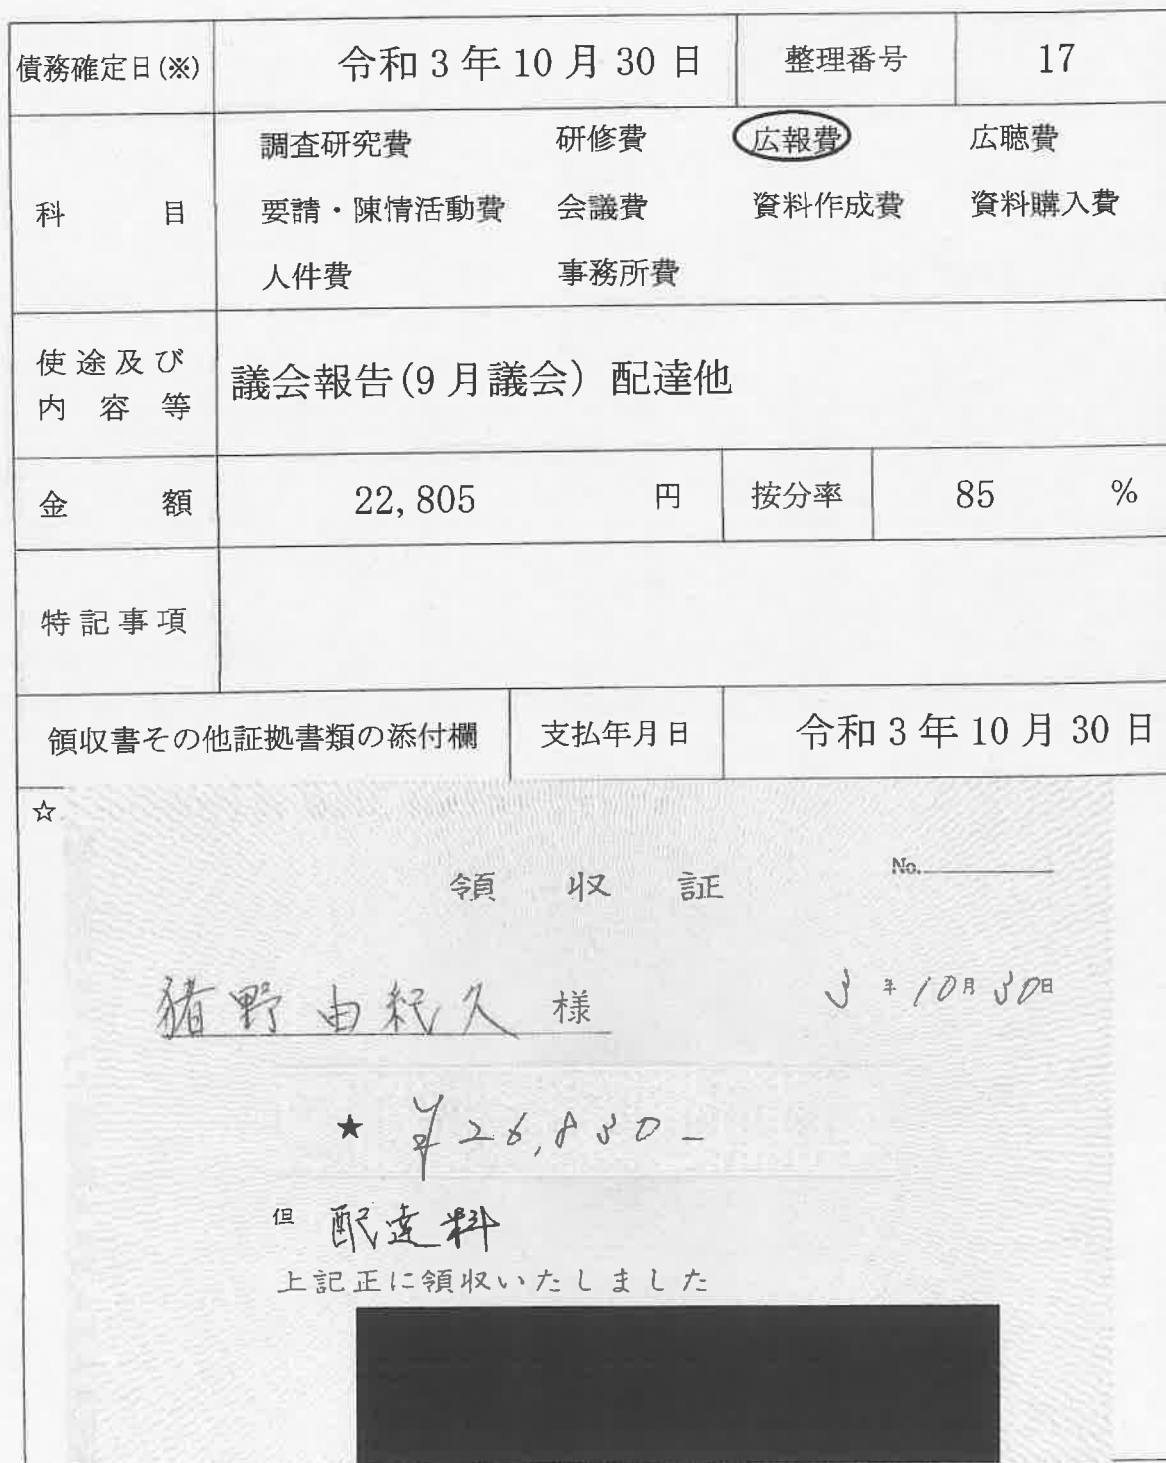 債務確定日(※) 令和3年10月30日 整理番号 17
調査研究費 研修費 広報費 広聴費
科目 要請・陳情活動費 会議費 資料作成費 資料購入費
人件費 事務所費
使途及び
内容等
議会報告(9月議会) 配達他
金額 22,805 円 按分率 85 %
特記事項
領収書その他証拠書類の添付欄 支払年月日 令和3年10月30日
☆
領収証 No.
猪野由紀久 様 3年10月30日
★ ¥26,830-
但 配達料
上記正に領収いたしました